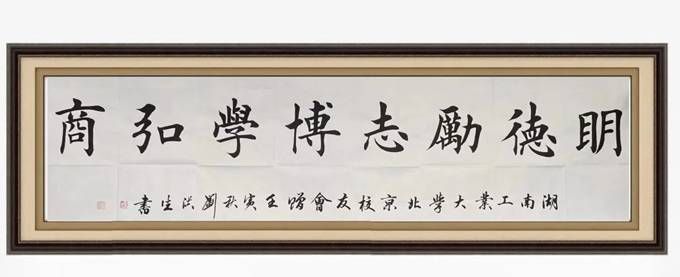 明德勵志博學弘商
湖南工業大學北京校友會贈壬寅秋劉洪生書